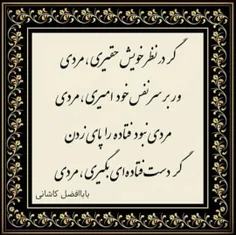 گر در نظر خویش حقیری، مردی
ور بر سر نفس خود امیری، مردی
مردی نبود فتاده را پای زدن
گر دست فتاده‌ای بگیری، مردی
باباافضل کاشانی